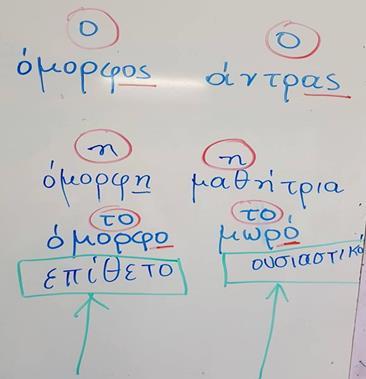 ο ο
όμορφος άντρας
η η
όμορφη μαθήτρια
το το
όμορφο μωρό
επίθετο ουσιαστικό